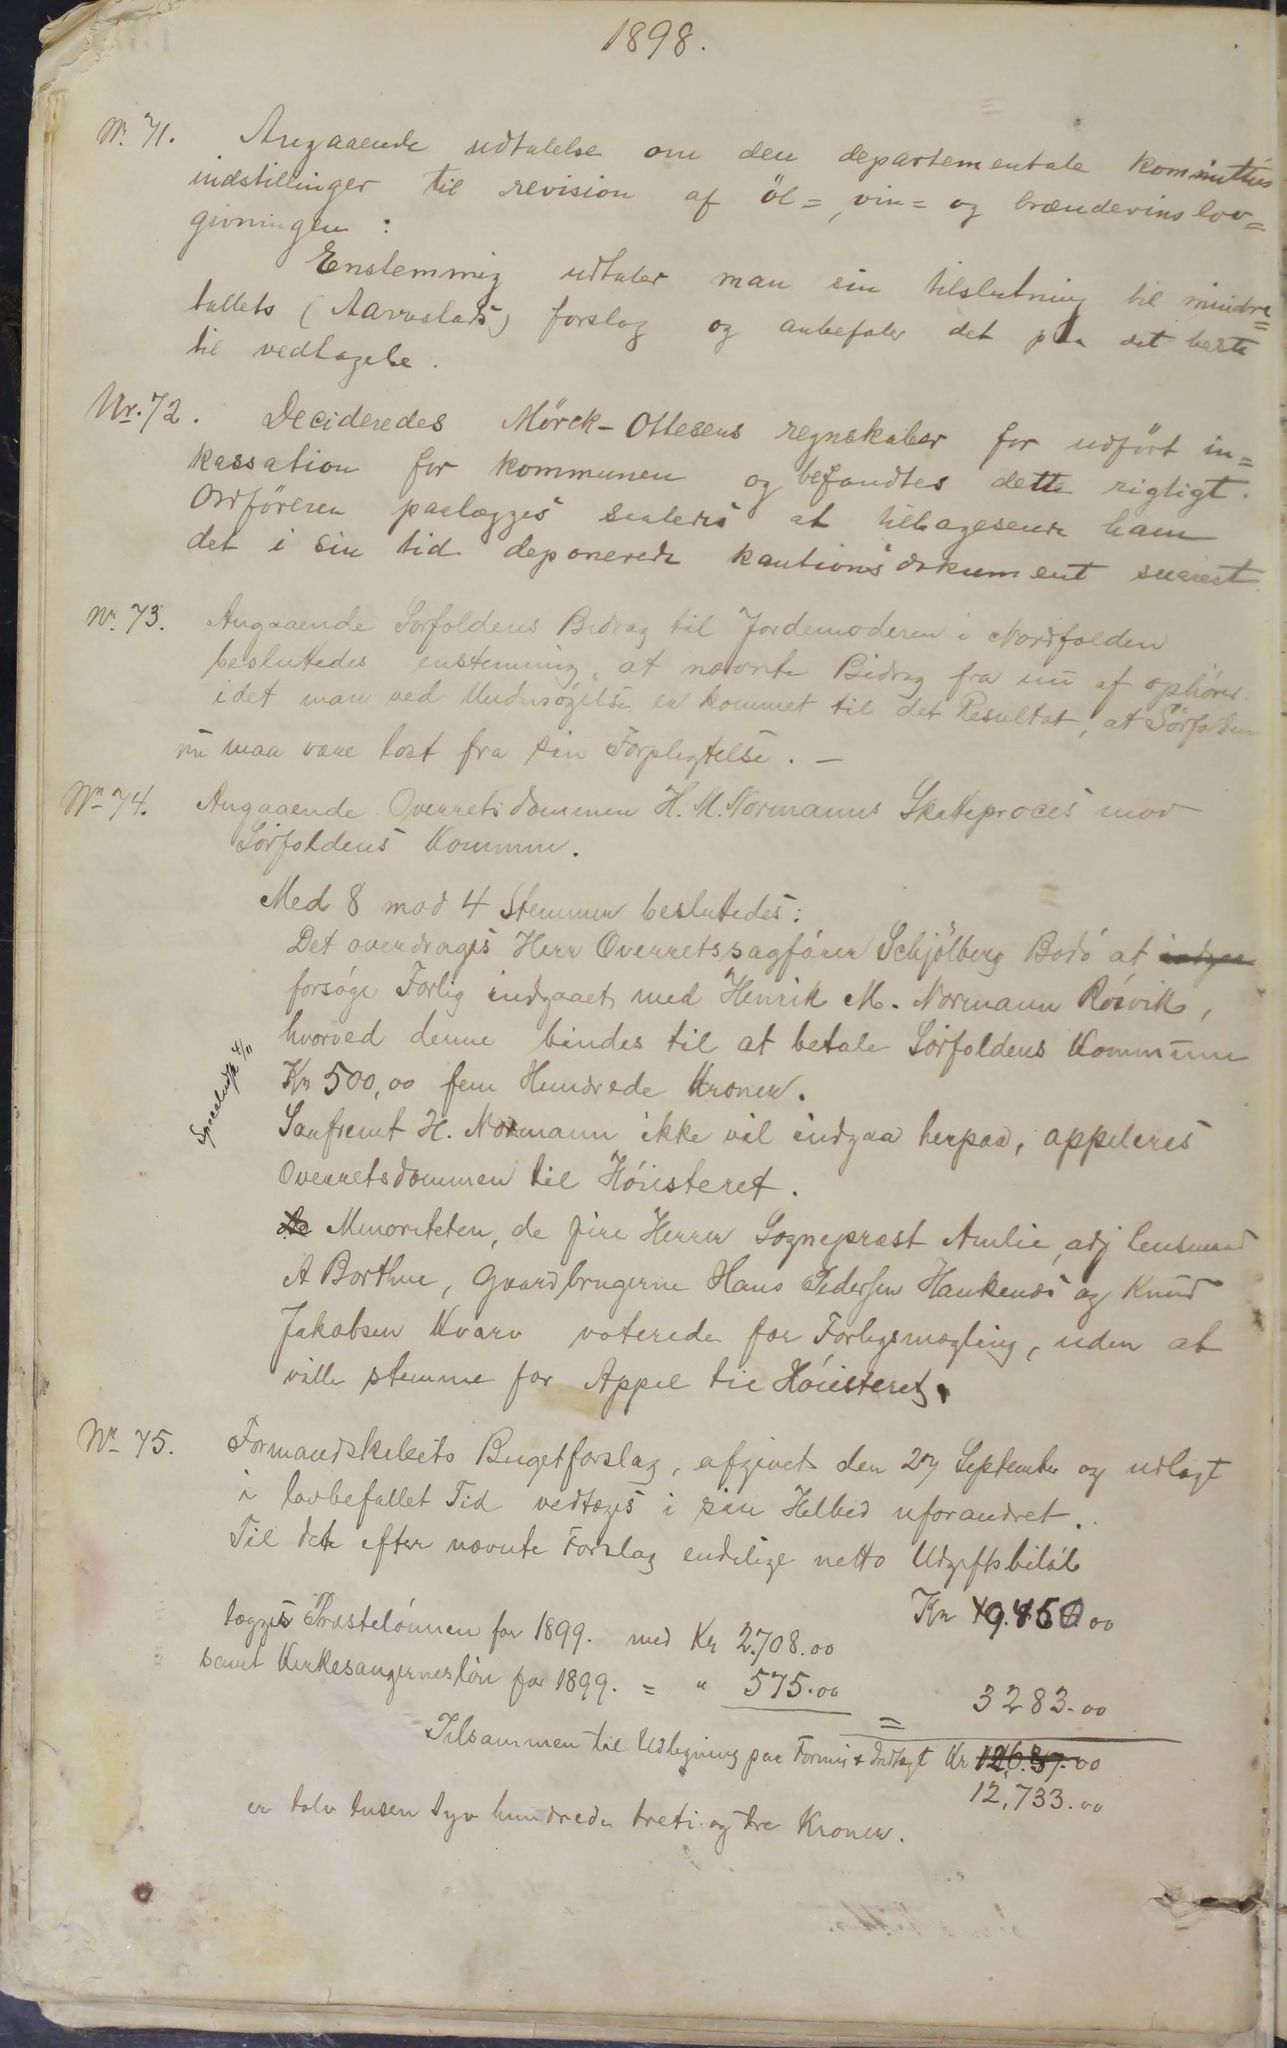 1898.
Nr. 71. Angaaende udtalelse om den departementale kommittés
indstillinger til revision af öl=, vin= og brændevinslov=
givningen:
Enstemmig udtaler man sin tilslutning til mindre=
tallets (Aarrestads) forslag og anbefaler det paa det beste
til vedtagelse.
Nr. 72. Decideredes Mörck-Ottesens regnskaber for udfört in=
kassation for kommunen og befandtes dette rigtigt.
Ordföreren paalægges saaledes at tilbagesende ham
det i sin tid deponerede kautionsdokument snarest.
Nr. 73. Angaaende Sørfoldens Bidrag til Jordemoderen i Nordfolden
besluttedes enstemmig at nævnte Bidrag fra nu af ophører
idet man ved Undersøgelse er kommet til det Resultat, at Sørfolden
nu maa være løst fra sin Forpligtelse. —
Nr. 74. Angaaende Overretsdommen H. M. Normanns Skatteproces mod
Sørfoldens Kommune.
Med 8 mod 4 Stemmer besluttedes:
Det overdrages Herr Overretssagfører Schjölberg Bodø at indgaa
forsøge Forlig indgaaet med Henrik M. Normann Røsvik,
hvorved denne bindes til at betale Sørfoldens Kommune
Kr 500,00 fem Hundrede Kroner.
Saafremt H. Normann ikke vil indgaa herpaa, appeleres
Overretsdommen til Høiesteret.
de Minoriteten, de fire Herrer Sogneprest Amlie, adj lensmand
A Borthne, Gaardbrugerne Hans Pedersen Hankenæs og Knud
Jakobsen Kvarv voterede for Forligsmægling, uden at
ville stemme for Appel til Høiesteret.
Nr. 75. Formandskabets Bugetforslag, afgivet den 27 September og udlagt
i lovbefallet Tid vedtages i sin Helhed uforandret.
Til dette efter nævnte Forslag endelige netto Udgiftsbeløb
Kr 9.450 00
lægges Præstelønnen for 1899. med Kr 2708.00
samt Kirkesangernesløn for 1899. = " 575.00 = 3283.00
Tilsammen til Udligning paa Formue & Indtægt Kr
12,733.00
er tolv tusen syv hundrede treti og tre Kroner.